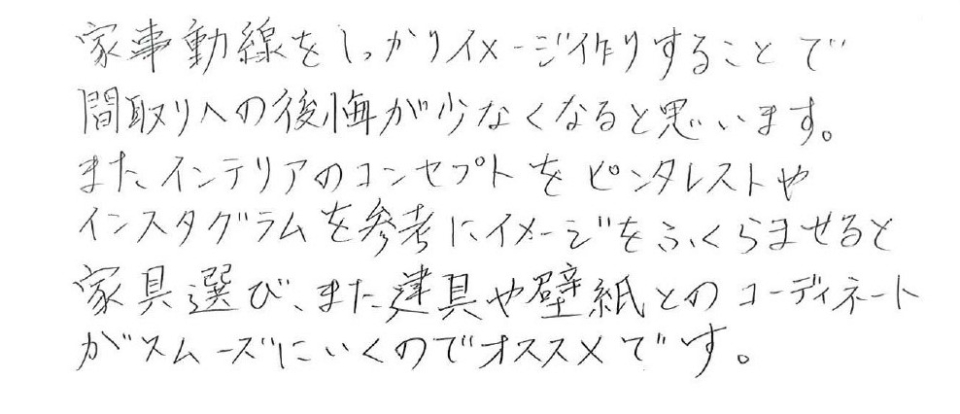 家事動線をしっかりイメージ作りすることで
間取りへの後悔が少なくなると思います。
またインテリアのコンセプトをピンタレストや
インスタグラムを参考にイメージをふくらませると
家具選び、また建具や壁紙とのコーディネート
がスムーズにいくのでオススメです。